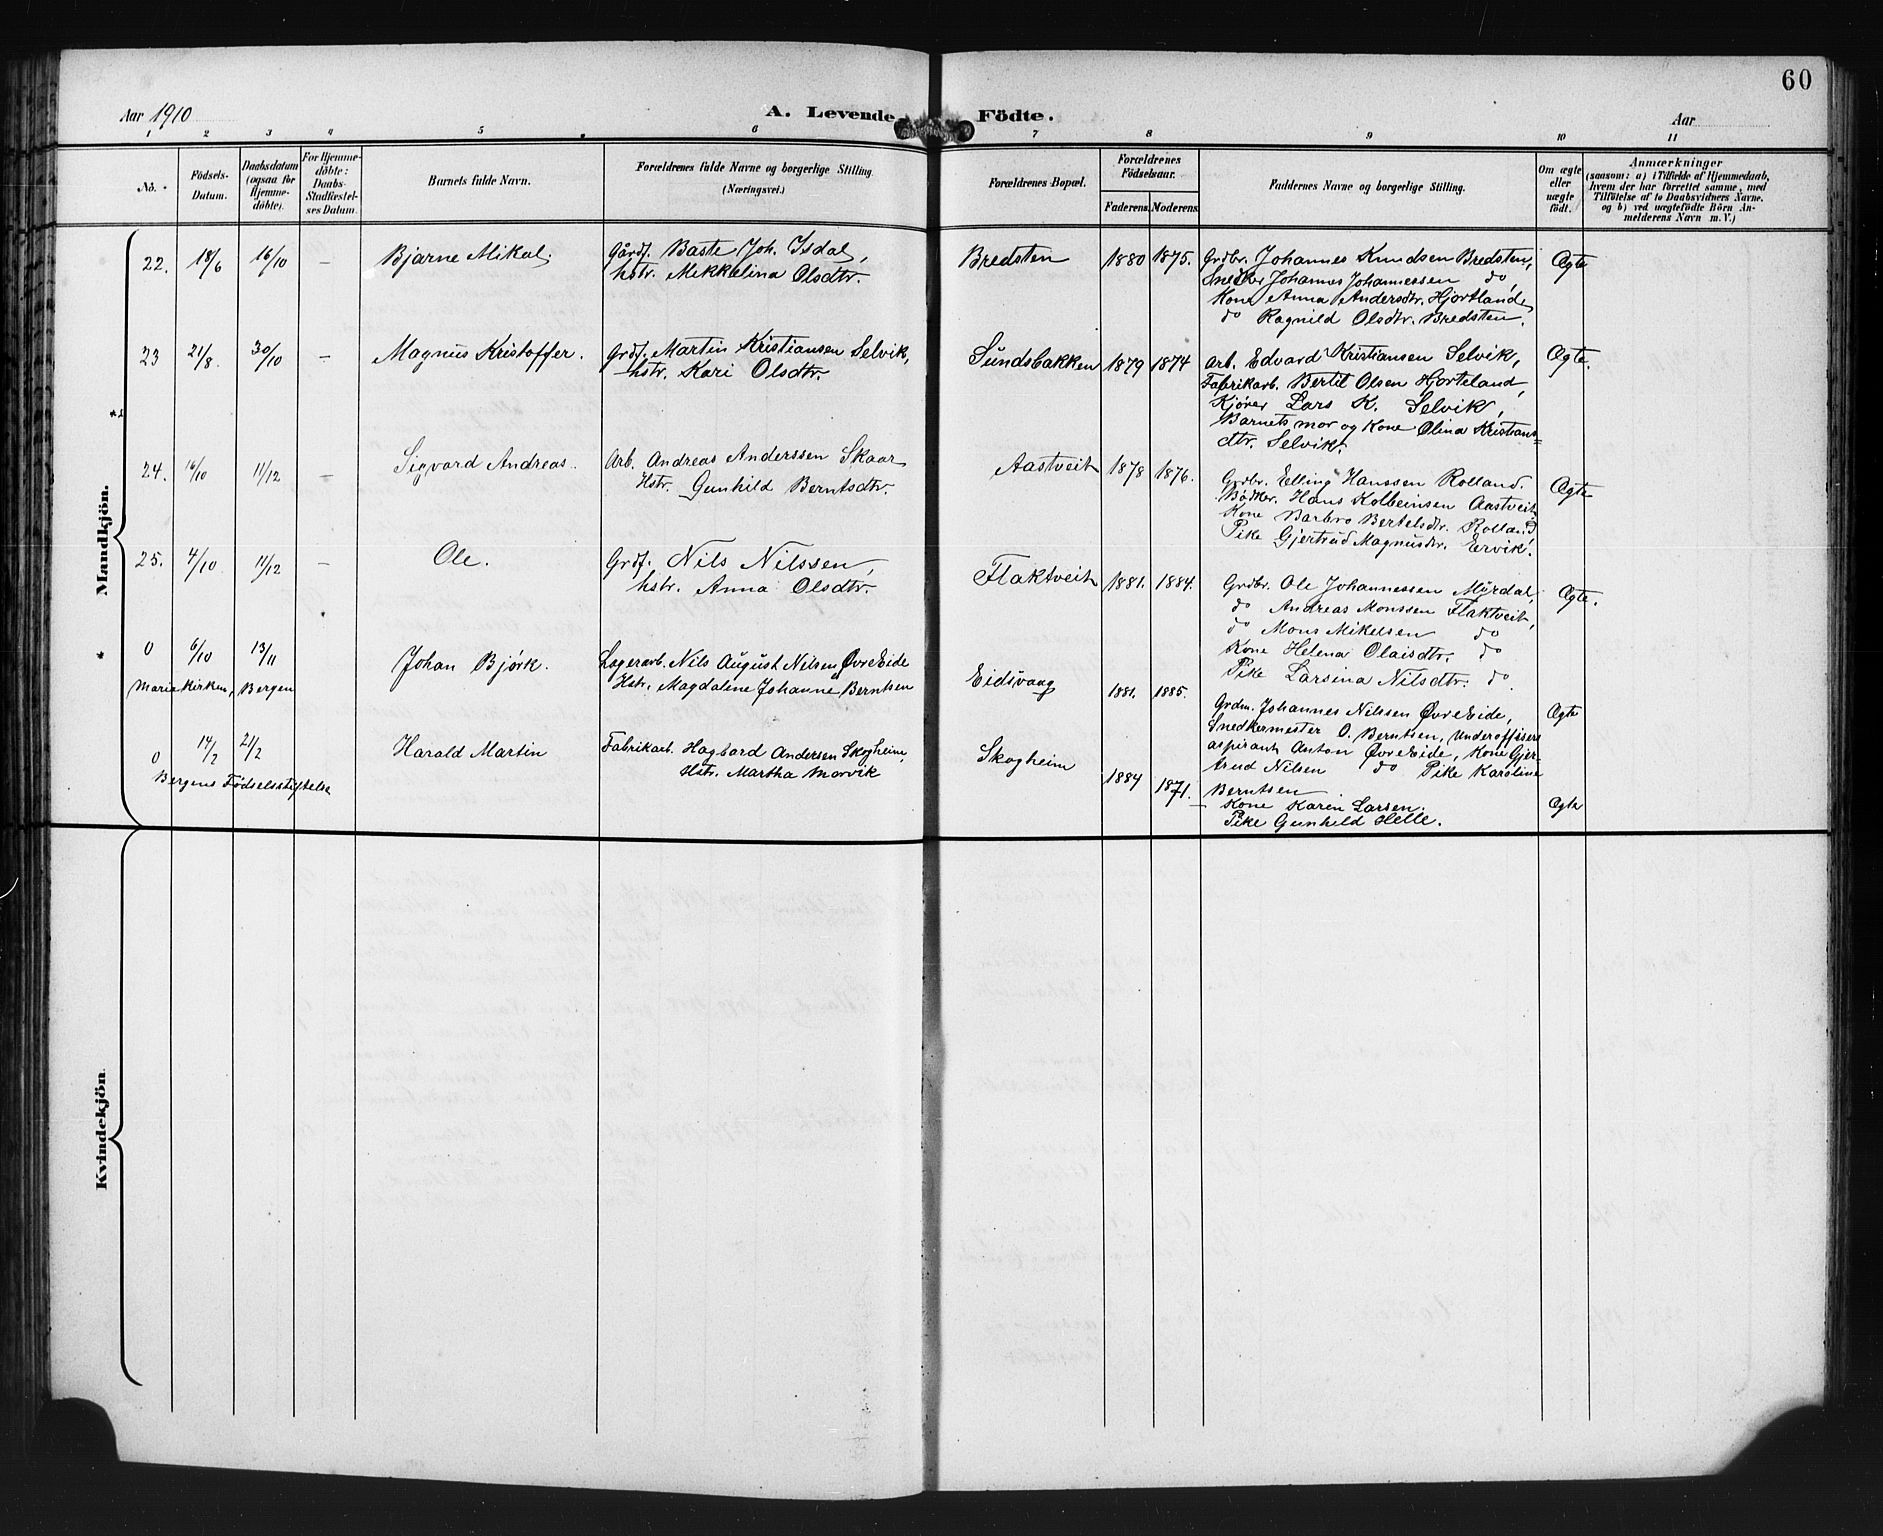 60
Aar 1910
A. Levende Födte.
Aar
1 2 3 4 5 6 7 8 9 10 11
No.
Födsels-
Datum.
Daabsdatum
(ogsaa for
Hjemme-
döbte).
For Hjemme-
döbte:
Daabs-
Stadfæstel-
ses Datum.
Barnets fulde Navn.
Forældrenes fulde Navne og borgerlige Stilling.
(Næringsvei.)
Forældrenes Bopæl.
Forældrenes
Födselsaar.
Faderens. Moderens.
Faddernes Navne og borgerlige Stilling.
Om ægte
eller
uægte
födt.
Anmærkninger
(saasom: a) i Tilfælde af Hjemmedaab,
hvem der har forrettet samme, med
Tilföielse af to Daabsvidners Navne.
og b) ved uægtefödte Börn An-
melderens Navn m. V.)
Mandkjön.
22. 18/6 16/10 — Bjarne Mikal.
Gårdf. Baste Joh. Isdal,
hstr. Mikkelina Olsdtr.
Bredsten 1880 1875.
Grdbr. Johannes Knudsen Bredsten,
Snedker Johannes Johannessen do,
Kone Anna Andersdtr. Hjortland,
do Ragnild Olsdtr. Bredsten.
Ægte
23 21/8. 30/10 — Magnus Kristoffer.
Grdf. Martin Kristiansen Selvik,
hstr. Kari Olsdtr.
Sundsbakken 1879 1874
Arb. Edvard Kristiansen Selvik,
Fabrikarb. Bertil Olsen Hjorteland,
Kjører Lars K. Selvik,
Barnets mor og Kone Olina Kristians=
dtr. Selvik.
Ægte.
24. 16/10 11/12 — Sigvard Andreas.
Arb. Andreas Anderssen Skaar
Hstr. Gunhild Berntsdtr.
Aastveit 1878 1876.
Grdbr. Elling Hanssen Rolland.
Bødker. Hans Kolbeinsen Aastveit
Kone Barbro Bertelsdtr. Rolland
Pike Gjertrud Magnusdtr. Ervik.
Ægte
25. 4/10 11/12 — Ole.
Grdf. Nils Nilssen,
hstr. Anna Olsdtr.
Flaktveit 1881. 1884.
Grdbr. Ole Johannessen Myrdal,
do Andreas Monssen Flaktveit,
do Mons Mikelsen do
Kone Helena Olaisdtr. do
Pike Larsina Nilsdtr. do.
Ægte.
0 6/10 13/11 Johan Bjørk.
Mariakirken, Bergen
Lagerarb. Nils August Nilsen Øvre Eide
Hstr. Magdalene Johanne Berntsen
Eidsvaag 1881. 1885.
Grdm. Johannes Nilssen Øvre Eide,
Snedkermester O. Berntsen, Underoffisers
aspirant Anton Øvre Eide, Kone Gjer-
trud Nilsen do Pike Karoline
Berntsen
Ægte
0 14/2 21/2 Harald Martin
Bergens Fødselsstiftelse
Fabrikarb. Hagbard Andersen Skogheim,
Hstr. Martha Morvik
Skogheim 1884 1871.
Kone Karen Larsen.
Pike Gunhild Helle.
Ægte
Kvindekjön.